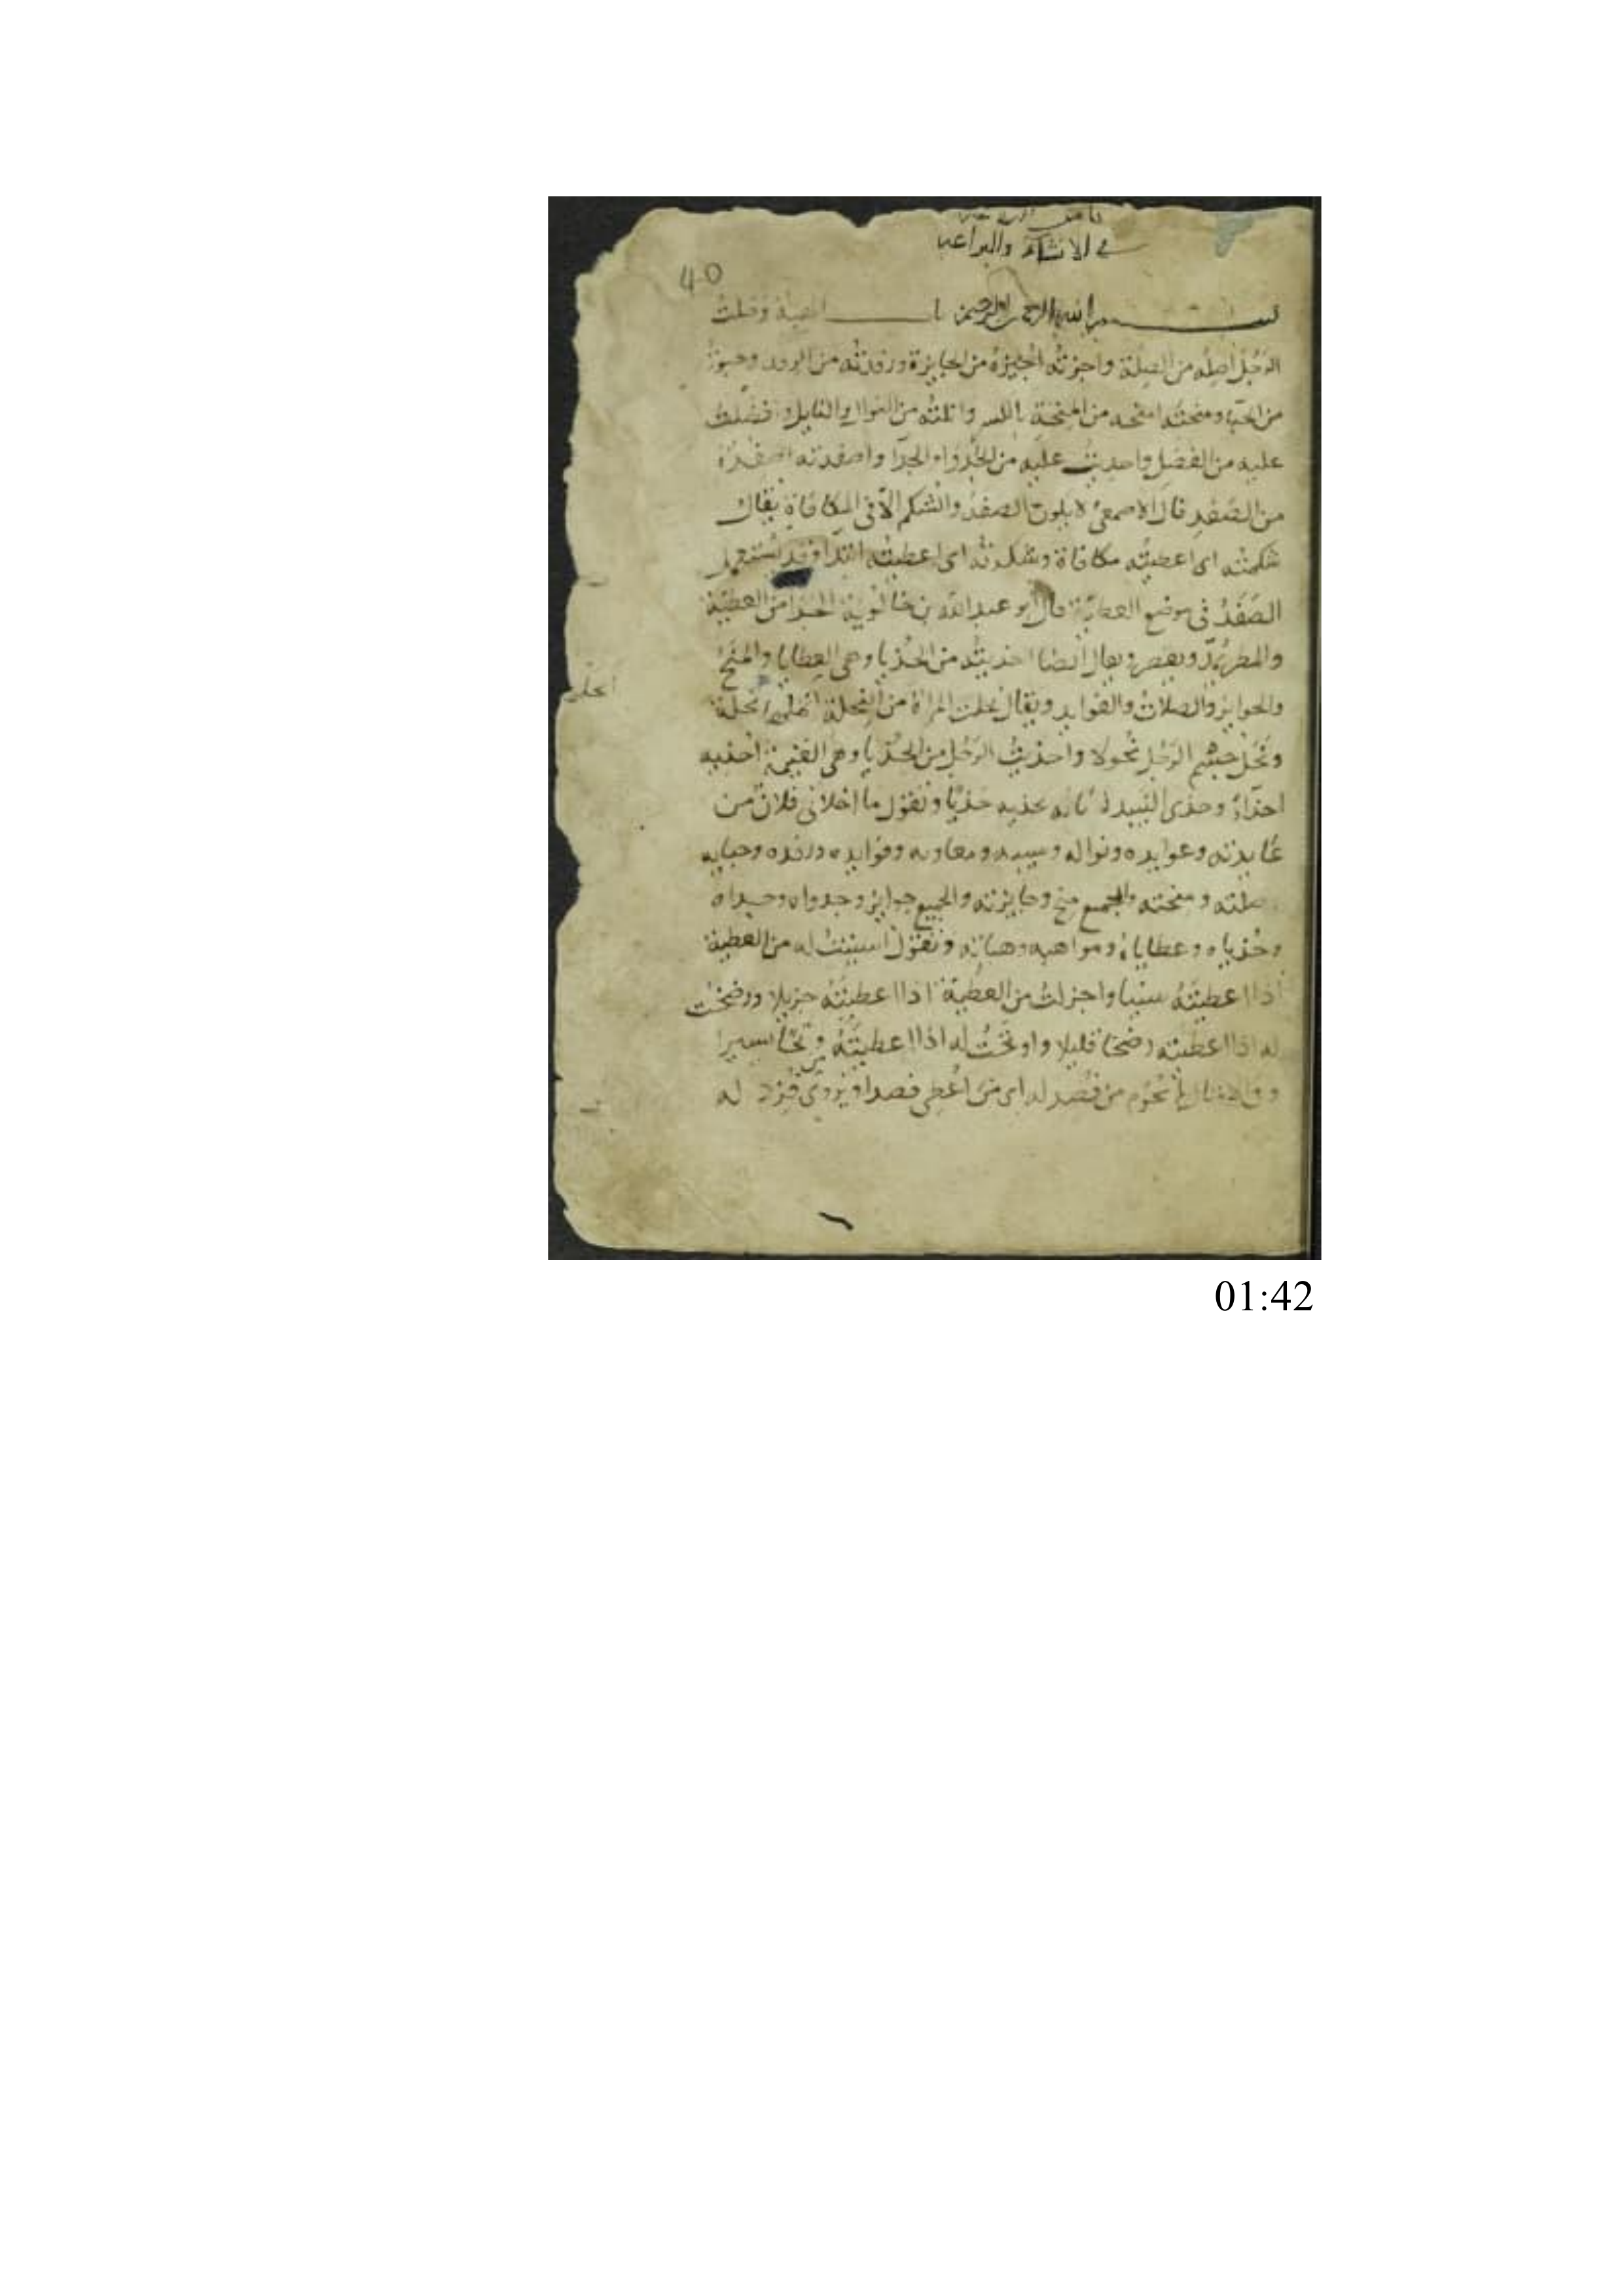 في الانشاء والبراعه
40
بسم الله الرحمن الرحيم باب العطية وصلت
الرجل اصله من الصلة واجزته اجيزه من الجايزة ورفدته من الرفد وحبوته
من الحباء ومنحته امنحه من المنحة وانلته من النوال والنايل وافضلت
عليه من الفضل واجديت عليه من الجدوا والجدا واصفدته اصفده
من الصفد قال الاصمعي لا يكون الصفد والشكم الا في المكافاة يقال
شكمته اى اعطيته مكافاة وشكدته اى اعطيته ابتدا وقد يستعمل
الصفد في موضع العطية قال ابو عبدالله بن خالويه الجدا من العطية
والمطر يمد ويقصر ويقال ايضا احذيته من الحذيا وهى العطايا والمنح
والجوايز والصلات والفوايد ويقال نحلت المراة من النحلة انحلها نحلة
ونحل جسم الرجل نحولا واحذيت الرجل من الحذيا وهى الغنيمة احذيه
احذاء وحذى النبيذ لسانه يحذيه حذيا وتقول ما اخلانى فلان من
عايدته وعوايده ونواله وسيبه ومعاونه وفوايده ورفده وحبايه
وصلته ومنحته والجمع منح وجايزته والجميع جوايز وجدواه وجداه
وحذياه وعطاياه ومواهبه وهباته وتقول اسنيت له من العطية
اذا اعطيته سنيا واجزلت من العطية اذا اعطيته جزيلا ورضخت
له اذا اعطيته رضخا قليلا واوتحت له اذا اعطيته وتحا يسيرا
وفي الامثال لم يحرم من فصد له اى من اعطى فصدا ويروى فزد له
01:42